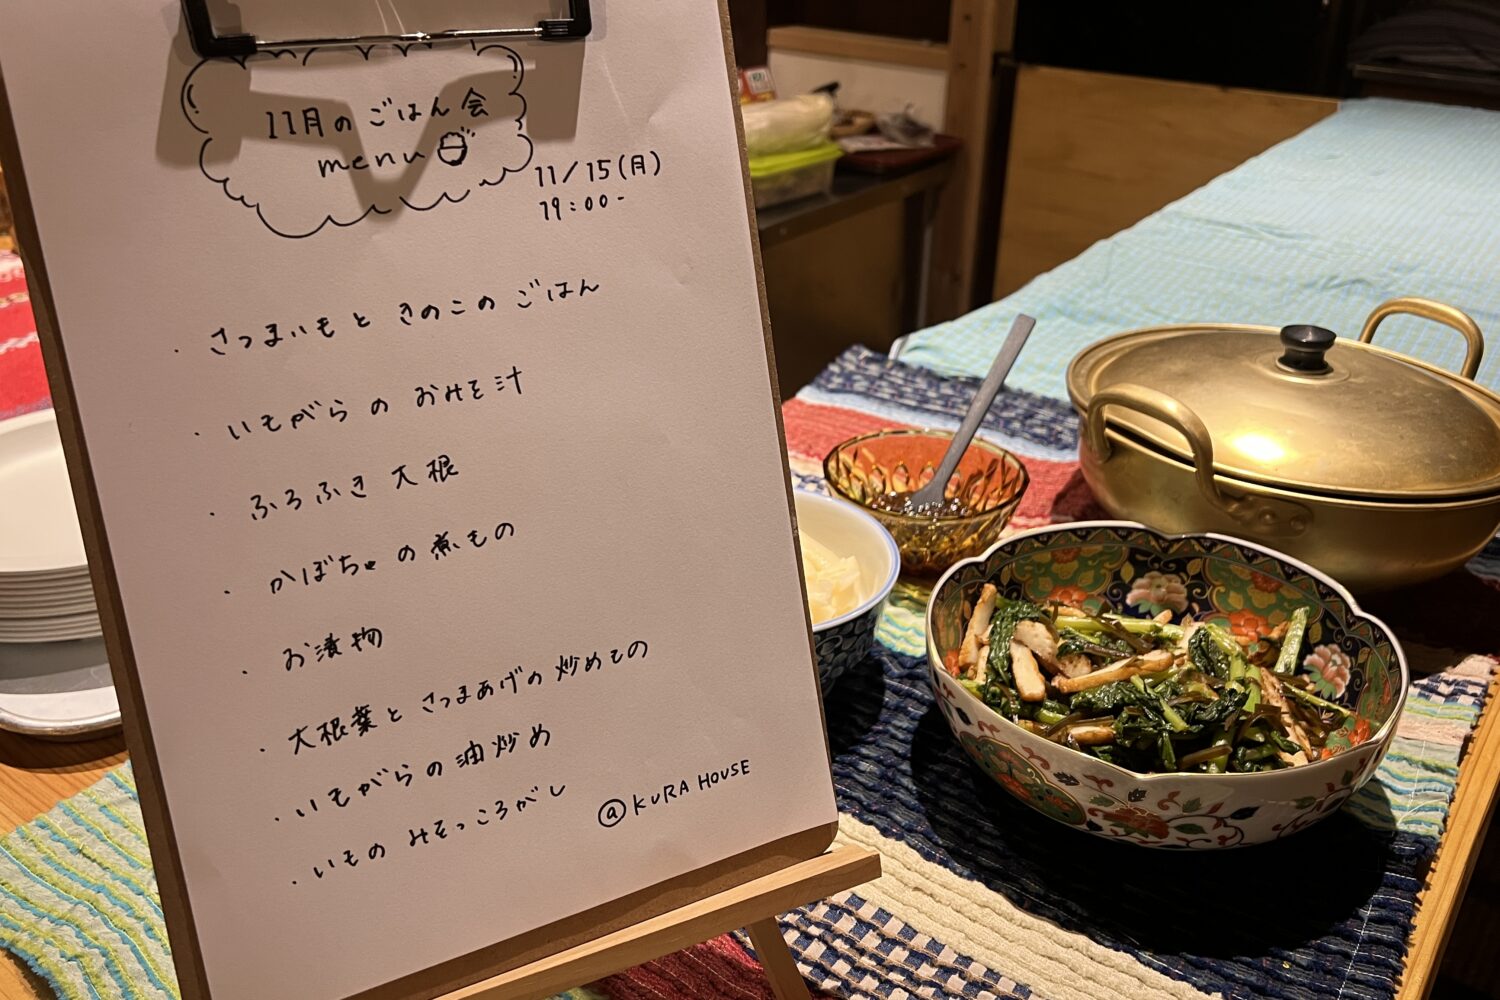 11月のごはん会
menu
11/15(月)
19:00-
・さつまいもときのこのごはん
・いもがらのおみそ汁
・ふろふき大根
・かぼちゃの煮もの
・お漬物
・大根葉とさつまあげの炒めもの
・いもがらの油炒め
・いものみそっころがし
@KURA HOUSE